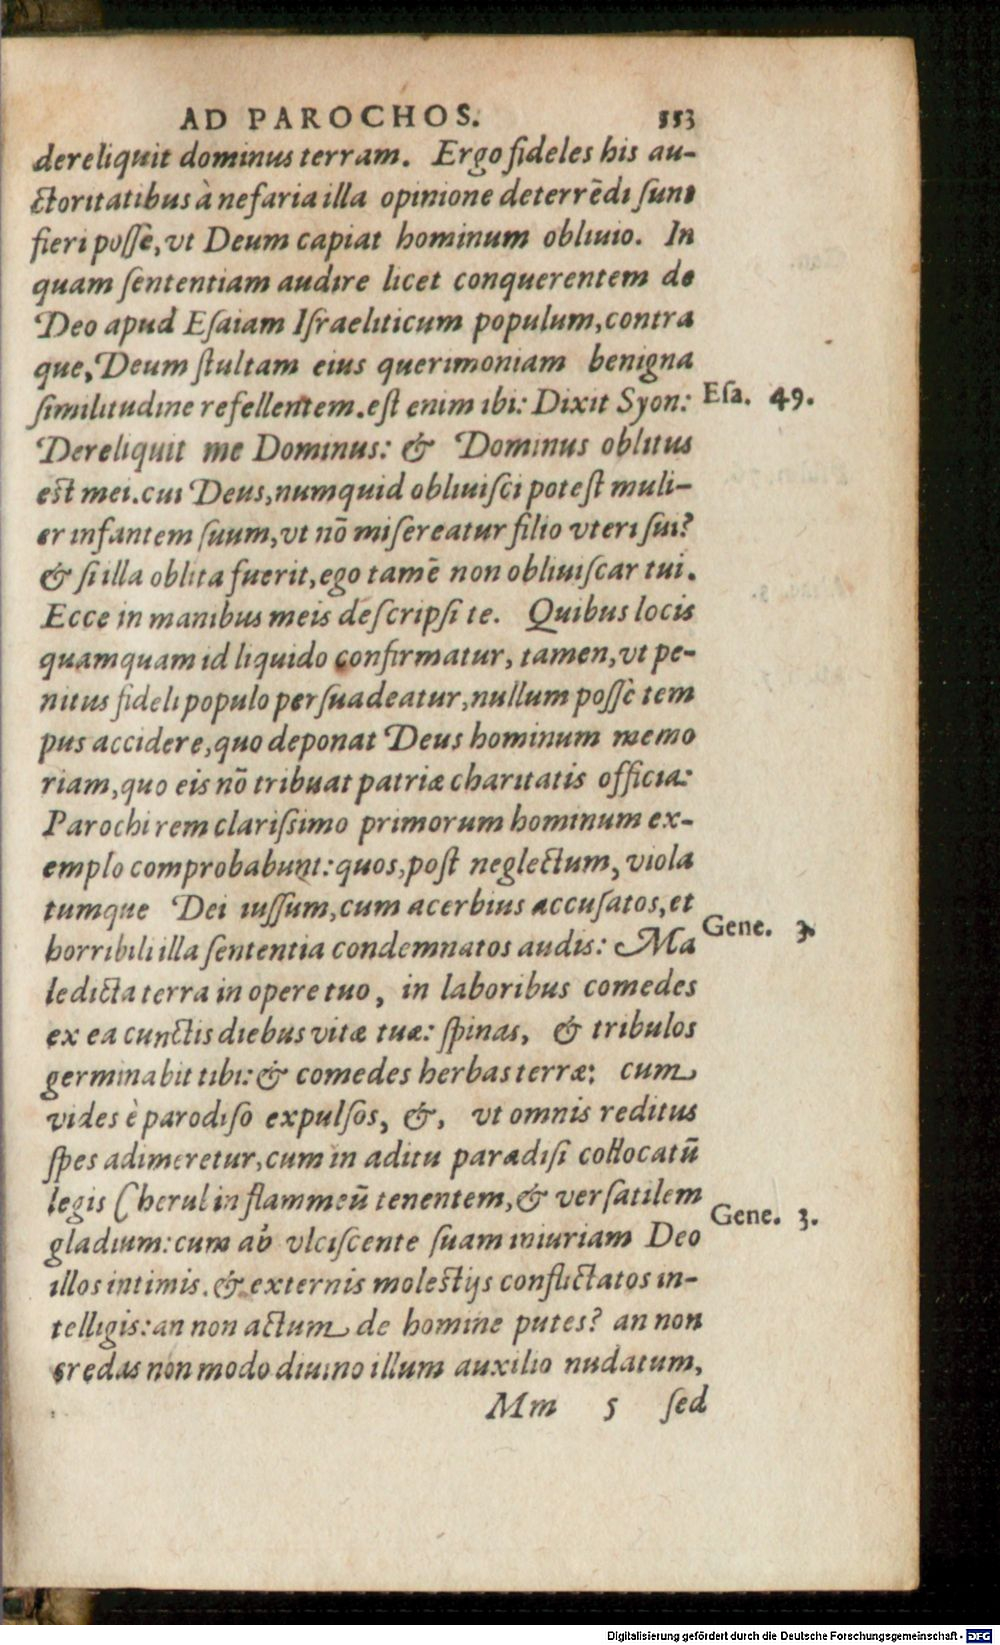 AD PAROCHOS. 553
dereliquit dominus terram. Ergo fideles his au-
ctoritatibus à nefaria illa opinione deterrēdi sunt
fieri posse, vt Deum capiat hominum obliuio. In
quam sententiam audire licet conquerentem de
Deo apud Esaiam Israeliticum populum, contra
que, Deum stultam eius querimoniam benigna
similitudine refellentem. est enim ibi: Dixit Syon: Esa. 49.
Dereliquit me Dominus: & Dominus oblitus
est mei. cui Deus, numquid obliuisci potest muli-
er infantem suum, vt nō misereatur filio vteri sui?
& si illa oblita fuerit, ego tamē non obliuiscar tui.
Ecce in manibus meis descripsi te. Quibus locis
quamquam id liquido confirmatur, tamen, vt pe-
nitus fideli populo persuadeatur, nullum posse tem
pus accidere, quo deponat Deus hominum memo
riam, quo eis nō tribuat patriæ charitatis officia:
Parochi rem clarissimo primorum hominum ex-
emplo comprobabunt: quos, post neglectum, viola
tumque Dei iussum, cum acerbius accusatos, et
horribili illa sententia condemnatos audis: Ma Gene. 3.
ledicta terra in opere tuo, in laboribus comedes
ex ea cunctis diebus vitæ tuæ: spinas, & tribulos
germinabit tibi: & comedes herbas terræ: cum
vides è parodiso expulsos, &, vt omnis reditus
spes adimeretur, cum in aditu paradisi collocatū
legis Cherubin flammeū tenentem, & versatilem
gladium: cum ab vlciscente suam iniuriam Deo Gene. 3.
illos intimis. & externis molestijs conflictatos in-
telligis: an non actum de homine putes? an non
credas non modo diuino illum auxilio nudatum,
Mm 5 sed
Digitalisierung gefördert durch die Deutsche Forschungsgemeinschaft - DFG